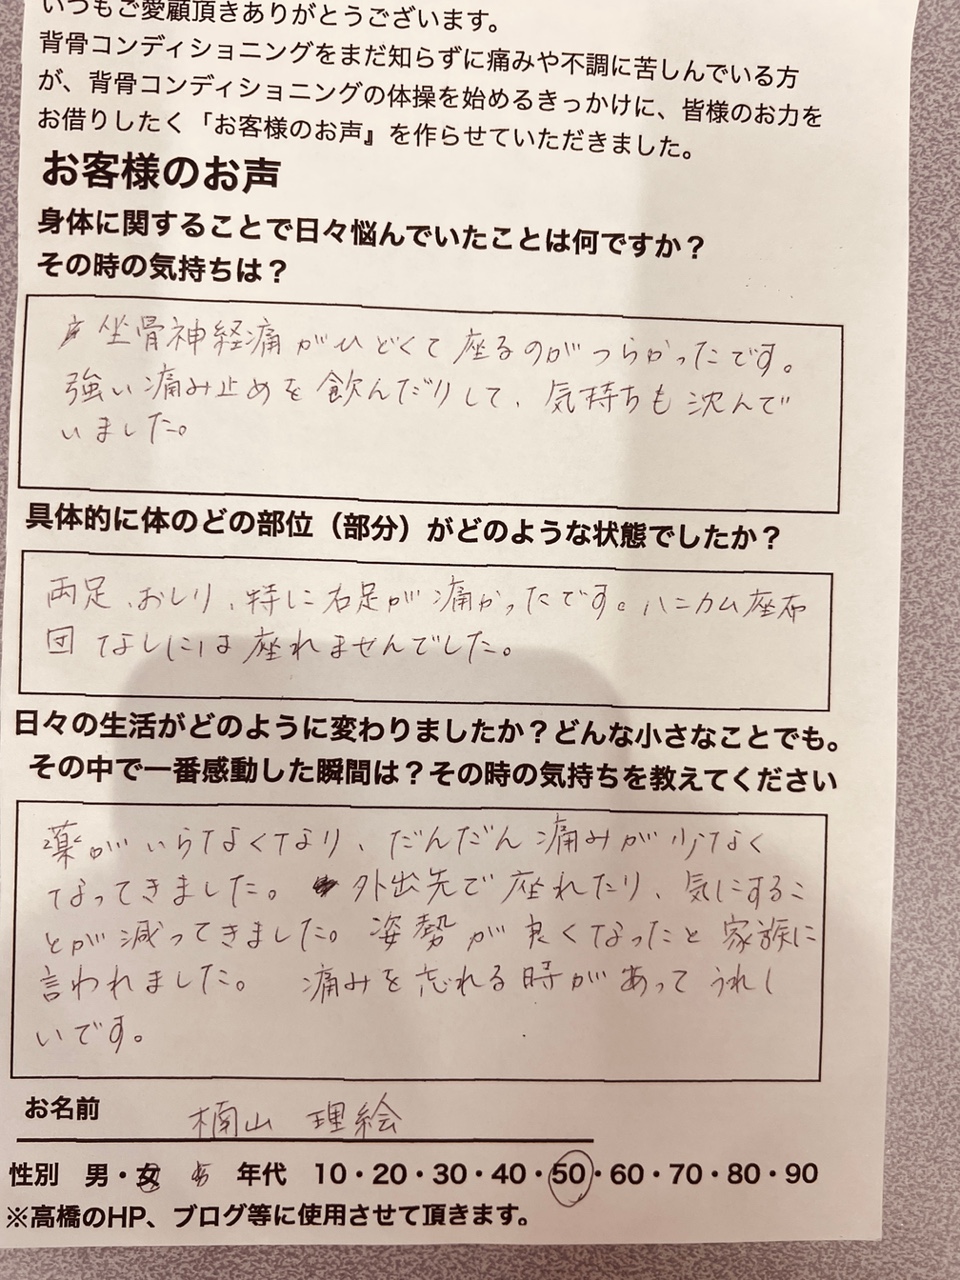 いつもご愛顧頂きありがとうございます。
背骨コンディショニングをまだ知らずに痛みや不調に苦しんでいる方
が、背骨コンディショニングの体操を始めるきっかけに、皆様のお力を
お借りしたく「お客様のお声』を作らせていただきました。
お客様のお声
身体に関することで日々悩んでいたことは何ですか？
その時の気持ちは？
坐骨神経痛がひどくて座るのがつらかったです。
強い痛み止めを飲んだりして、気持ちも沈んで
いました。
具体的に体のどの部位（部分）がどのような状態でしたか？
両足、おしり、特に右足が痛かったです。ハニカム座布
団なしには座れませんでした。
日々の生活がどのように変わりましたか？どんな小さなことでも。
その中で一番感動した瞬間は？その時の気持ちを教えてください
薬がいらなくなり、だんだん痛みが少なく
なってきました。外出先で座れたり、気にするこ
とが減ってきました。姿勢が良くなったと家族に
言われました。 痛みを忘れる時があってうれし
いです。
お名前 楠山 理絵
性別 男・女 年代 10・20・30・40・50・60・70・80・90
※高橋のHP、ブログ等に使用させて頂きます。